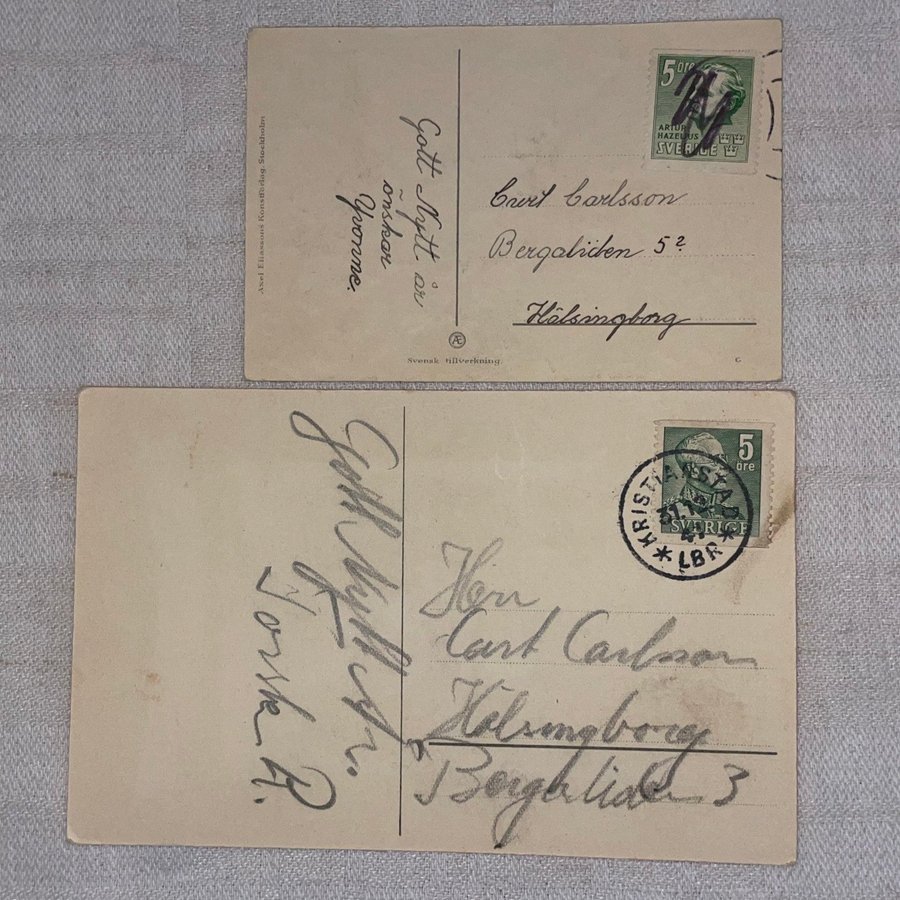 5 öre
ARTUR
HAZELIUS
SVERIGE
Gott Nytt år
önskar
Yvonne.
Curt Carlsson
Bergaliden 5²
Hälsingborg
Axel Eliassons Konstförlag Stockholm
Æ
Svensk tillverkning.
C
5
öre
SVERIGE
KRISTIANSTAD
31.12
41
* LBR *
Gott Nytt År.
Torsten R.
Herr
Curt Carlsson
Hälsingborg
Bergaliden 3